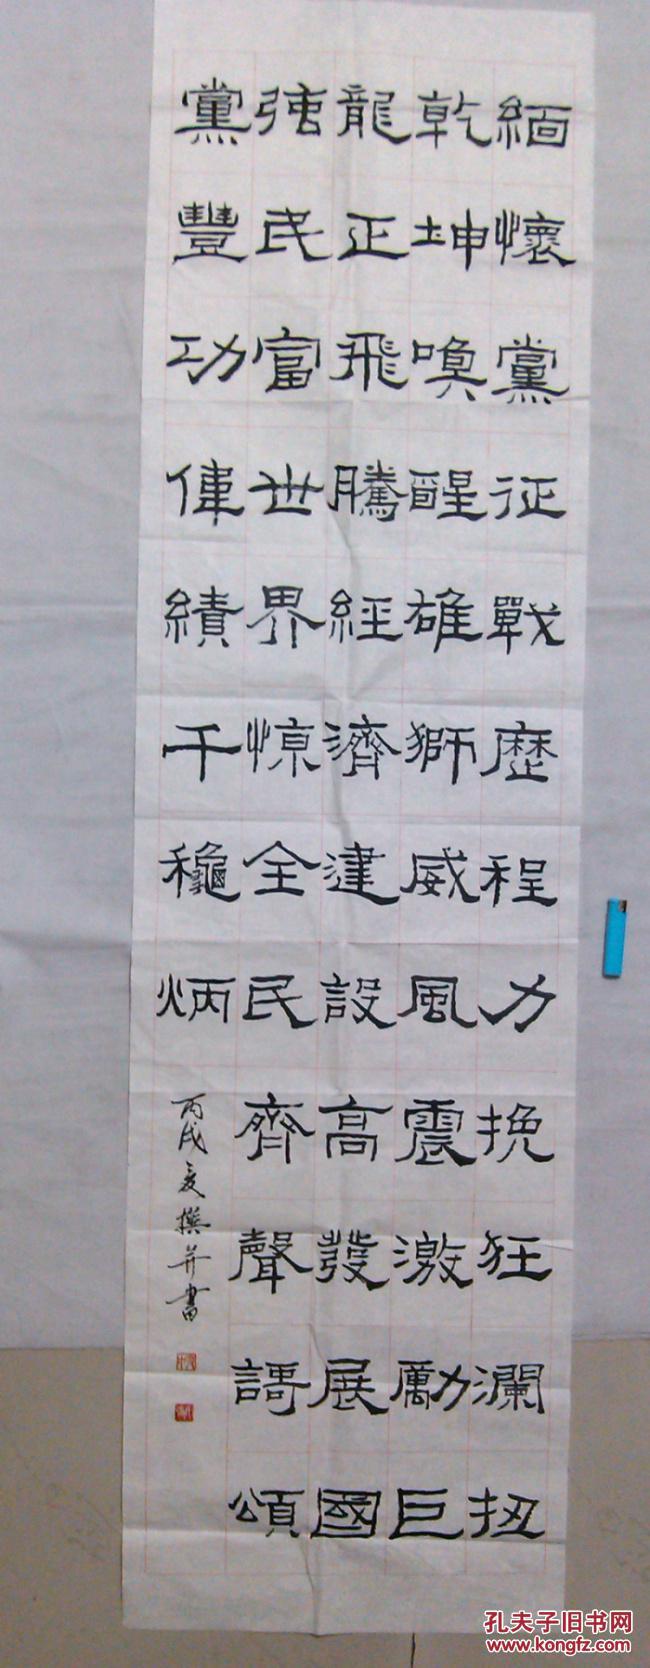 緬懷黨征戰歷程力挽狂瀾扭
乾坤喚醒雄獅威風震激勵巨
龍正飛騰經濟建設高發展國
強民富世界惊全民齊聲謌頌
黨豐功偉績千龝炳
丙戌夏撰并書
孔夫子旧书网
www.kongfz.com